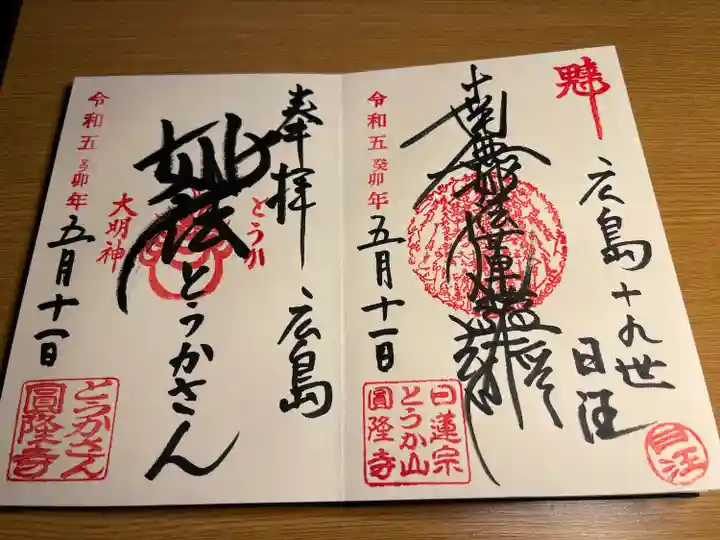 魁
広島十九世
日汪
日汪
南無妙法蓮華経
令和五癸卯年
五月十一日
日蓮宗
とうか山
圓隆寺
奉拝 広島
とうか
妙法
とうかさん
大明神
令和五癸卯年
五月十一日
とうかさん
圓隆寺